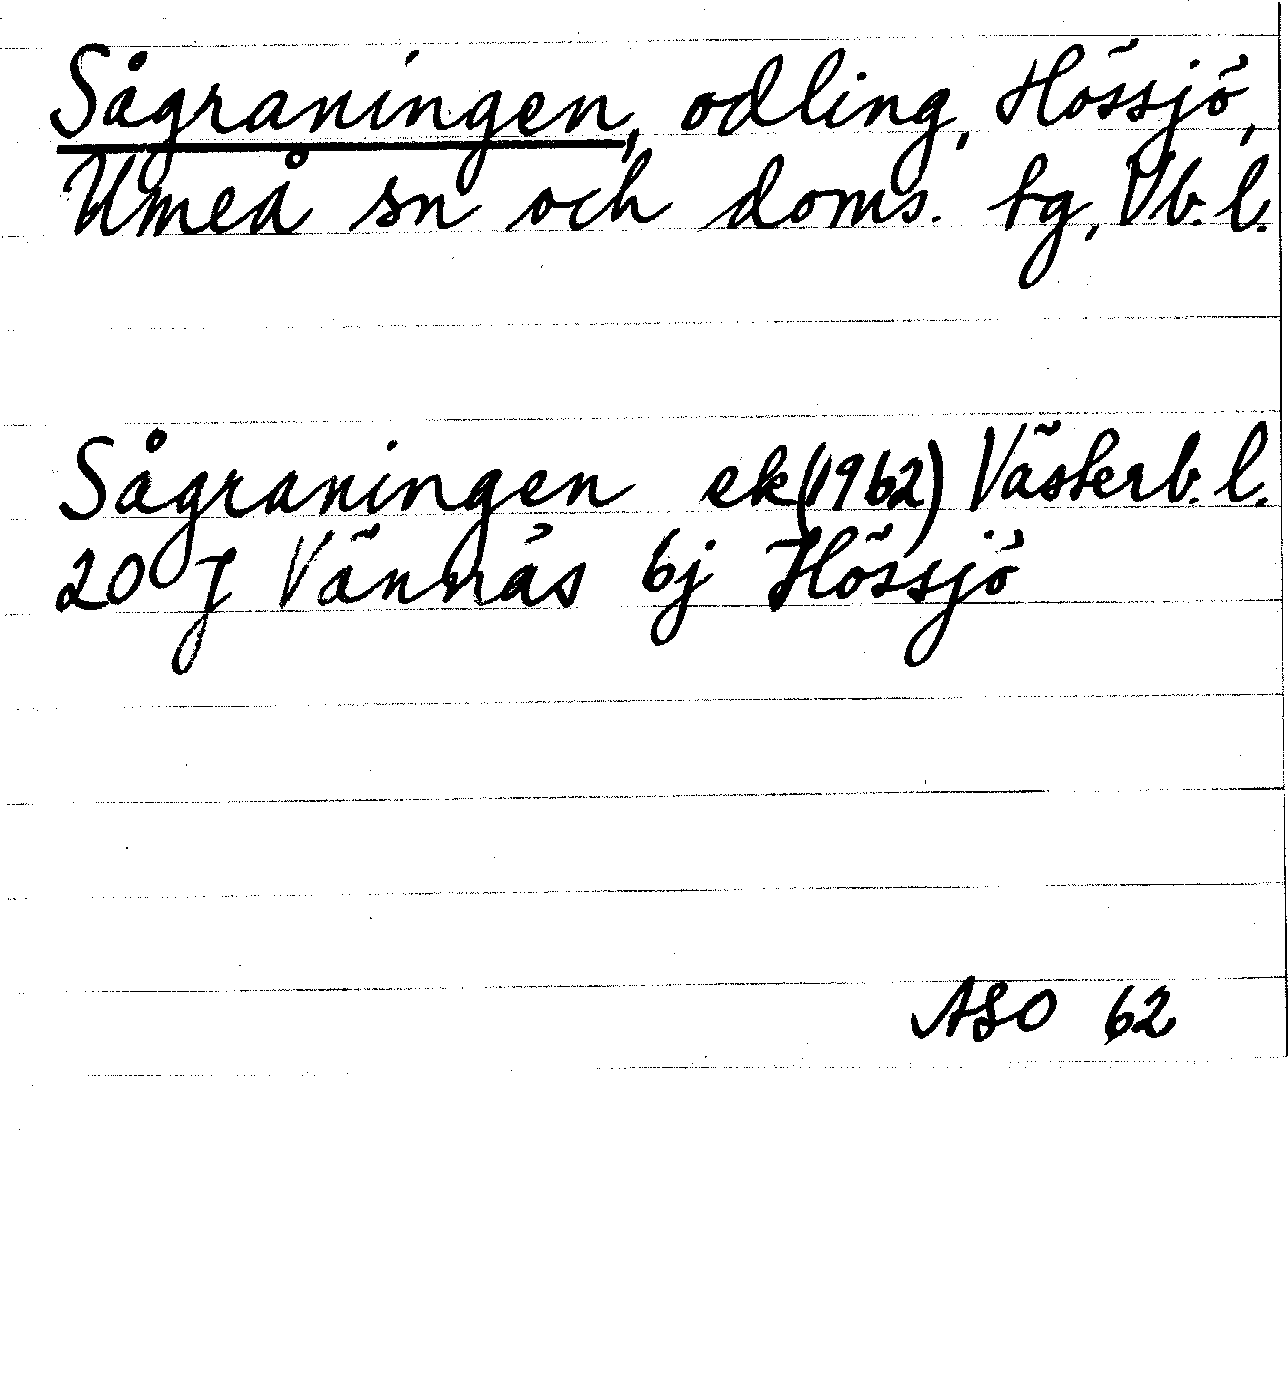 Sågraningen, odling, Hössjö,
Umeå sn och doms. tg, Vb. l.
Sågraningen ek (1962) Västerb. l.
20 J Vännäs 6j Hössjö
ASO 62